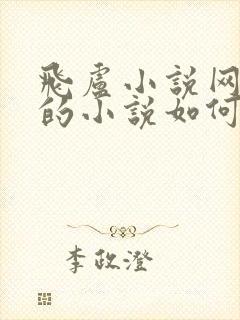 飛盧小説网
的小説如何
李政澄